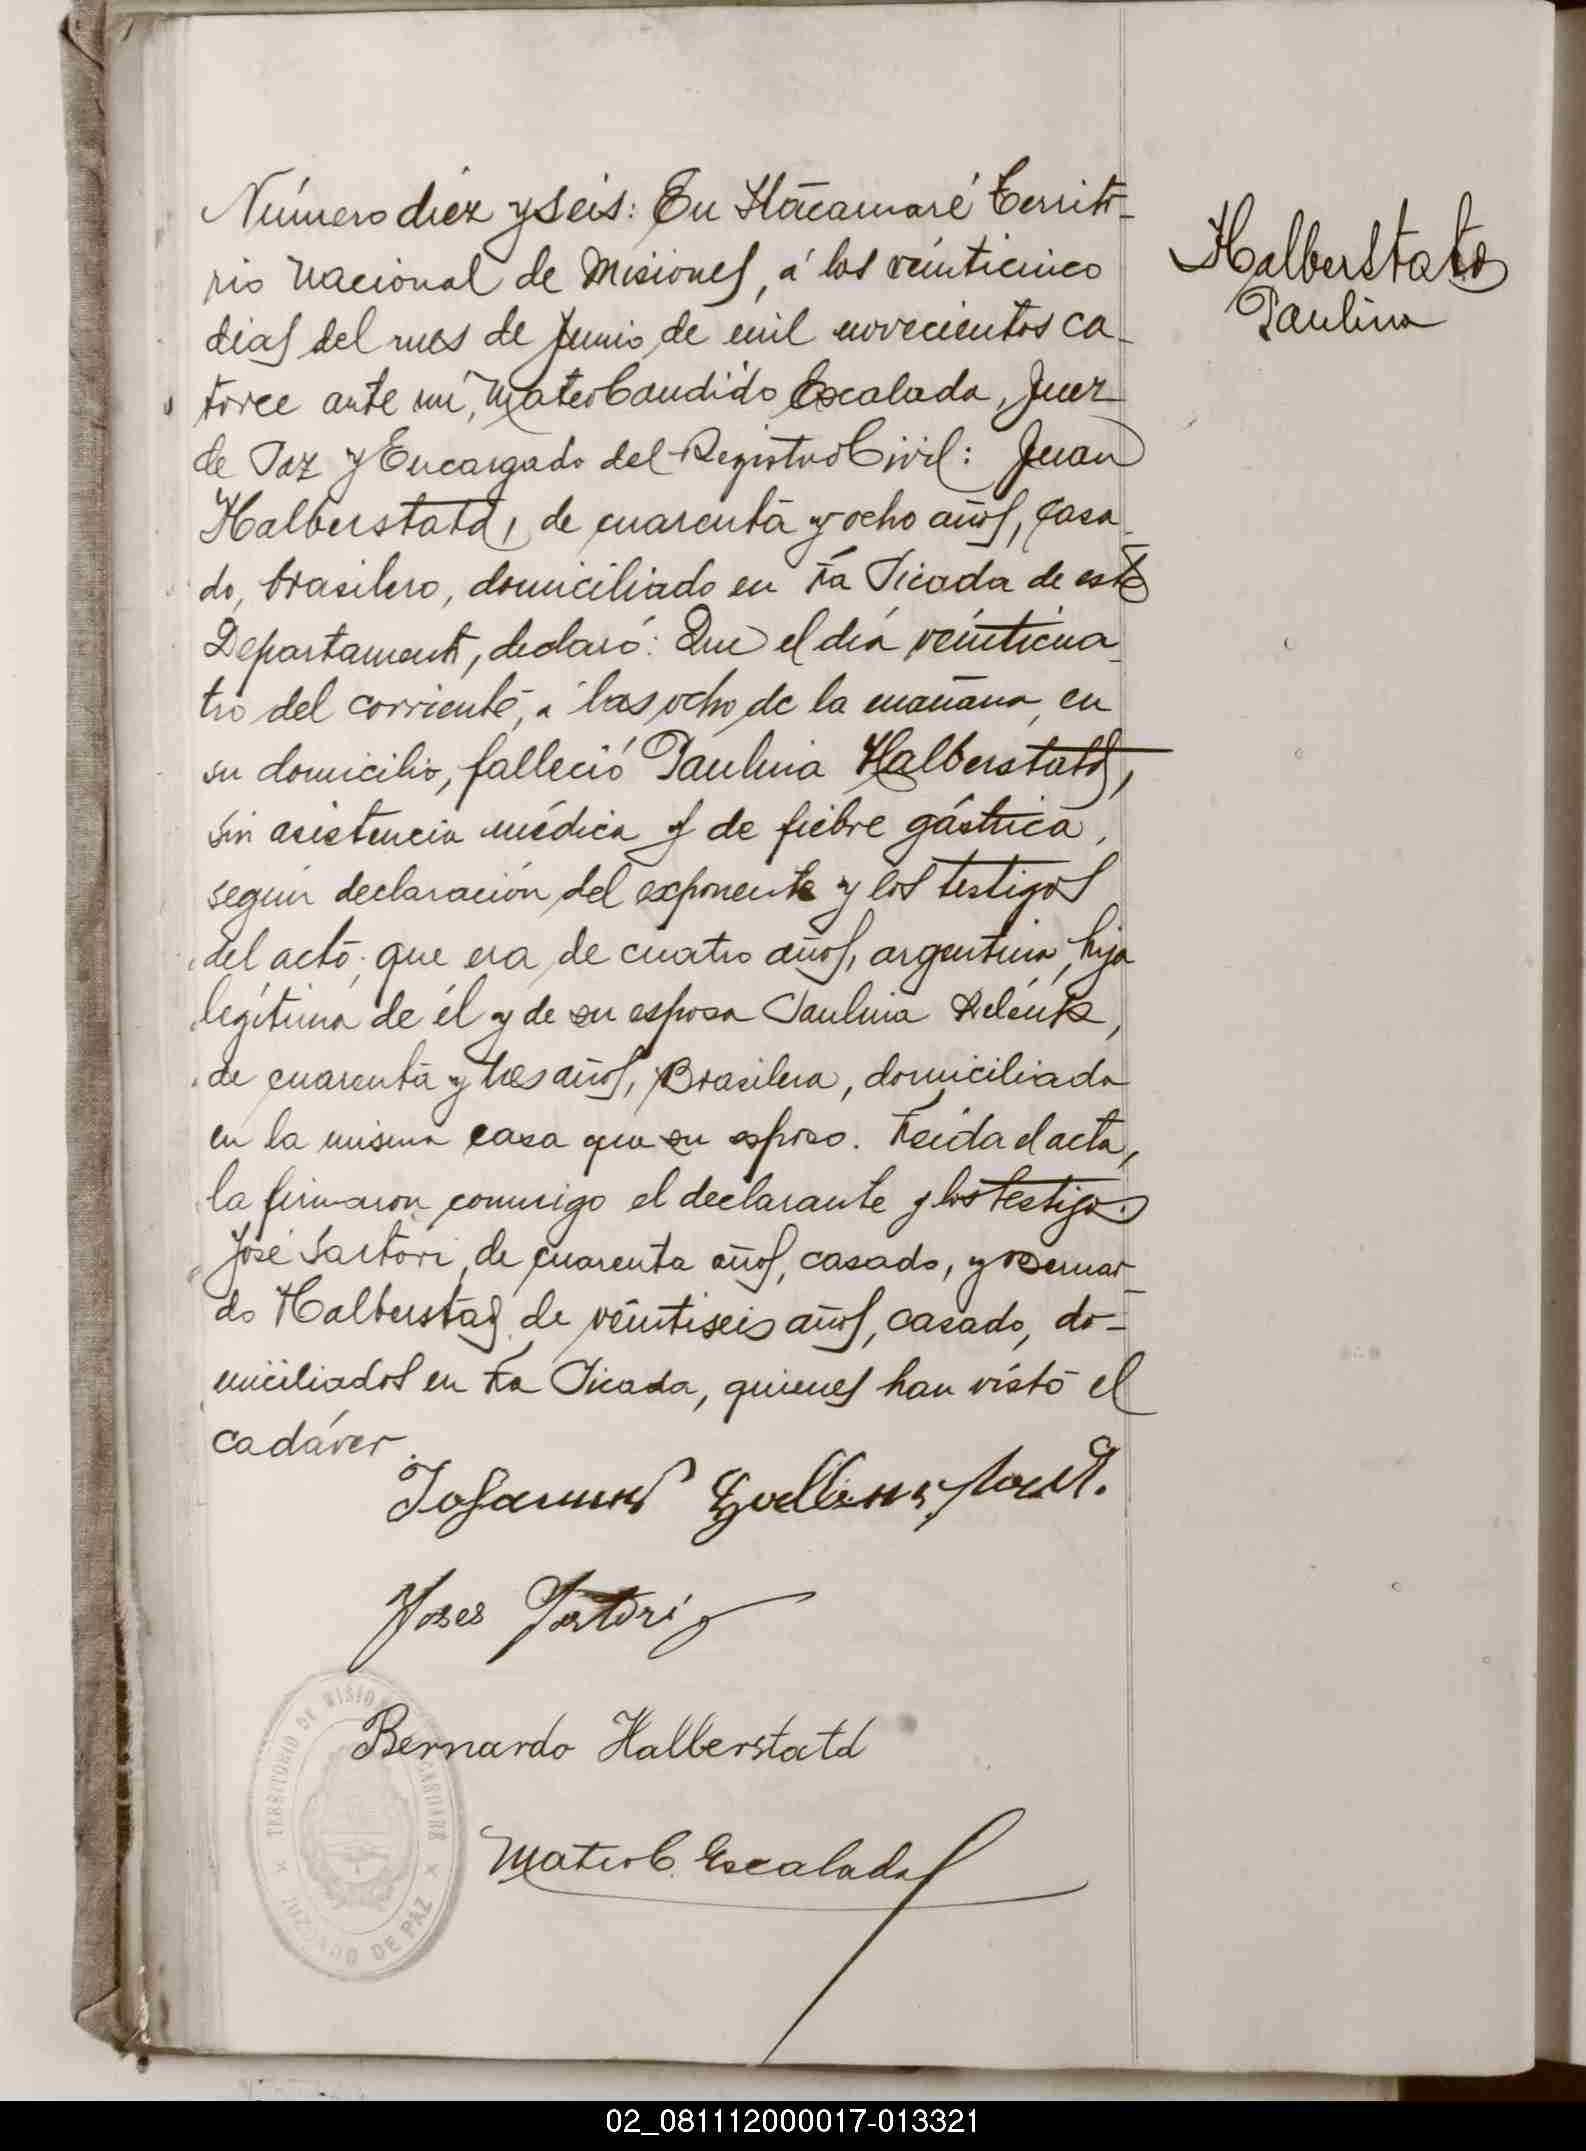 Número diez y seis: En Itacaruaré Territo-
rio Nacional de Misiones, á los veinticinco
dias del mes de Junio de mil novecientos ca-
torce ante mí, Mateo Candido Escalada, Juez
de Paz y Encargado del Registro Civil: Juan
Halberstatd, de cuarenta y ocho años, casa-
do, brasilero, domiciliado en La Picada de este
Departamento, declaró: Que el día veinticua-
tro del corriente, a las ocho de la mañana, en
su domicilio, falleció Paulina Halberstatd,
sin asistencia médica y de fiebre gástrica,
según declaración del exponente y los testigos
del acto; que era de cuatro años, argentina, hija
legítima de él y de su esposa Paulina
de cuarenta y tres años, Brasilera, domiciliada
en la misma casa que su esposo. Leida el acta,
la firmaron conmigo el declarante y los testigos
José Sartori, de cuarenta años, casado, y Bernar-
do Halberstad de veintiseis años, casado, do-
miciliados en La Picada, quienes han visto el
cadáver.
Halberstatd
Paulina
Johannes
Joses Sartori
Bernardo Halberstatd
Mateo C. Escalada
TERRITORIO DE MISIONES
JUZGADO DE PAZ
02_081112000017-013321